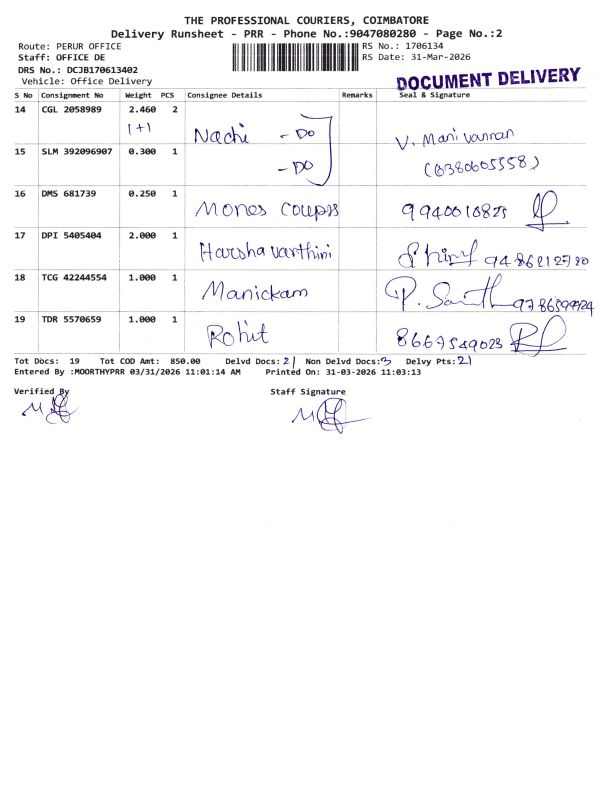 THE PROFESSIONAL COURIERS, COIMBATORE
Delivery Runsheet - PRR - Phone No.:9047080280 - Page No.:2
Route: PERUR OFFICE
RS No.: 1706134
Staff: OFFICE DE
RS Date: 31-Mar-2026
DRS No.: DCJB170613402
Vehicle: Office Delivery
DOCUMENT DELIVERY
S No Consignment No Weight PCS Consignee Details Remarks Seal & Signature
14 CGL 2058989 2.460 2
1+1 Nachi - DO V. Mani vannan
15 SLM 392096907 0.300 1
- DO
16 DMS 681739 0.250 1
Mones 9940018825
17 DPI 5405404 2.000 1
Harsha varthini 9486212780
18 TCG 42244554 1.000 1
Manickam
19 TDR 5570659 1.000 1
Rohit 8667549023
Tot Docs: 19 Tot COD Amt: 850.00 Delvd Docs:21 Non Delvd Docs:3 Delvy Pts:21
Entered By :MOORTHYPRR 03/31/2026 11:01:14 AM Printed On: 31-03-2026 11:03:13
Verified By Staff Signature